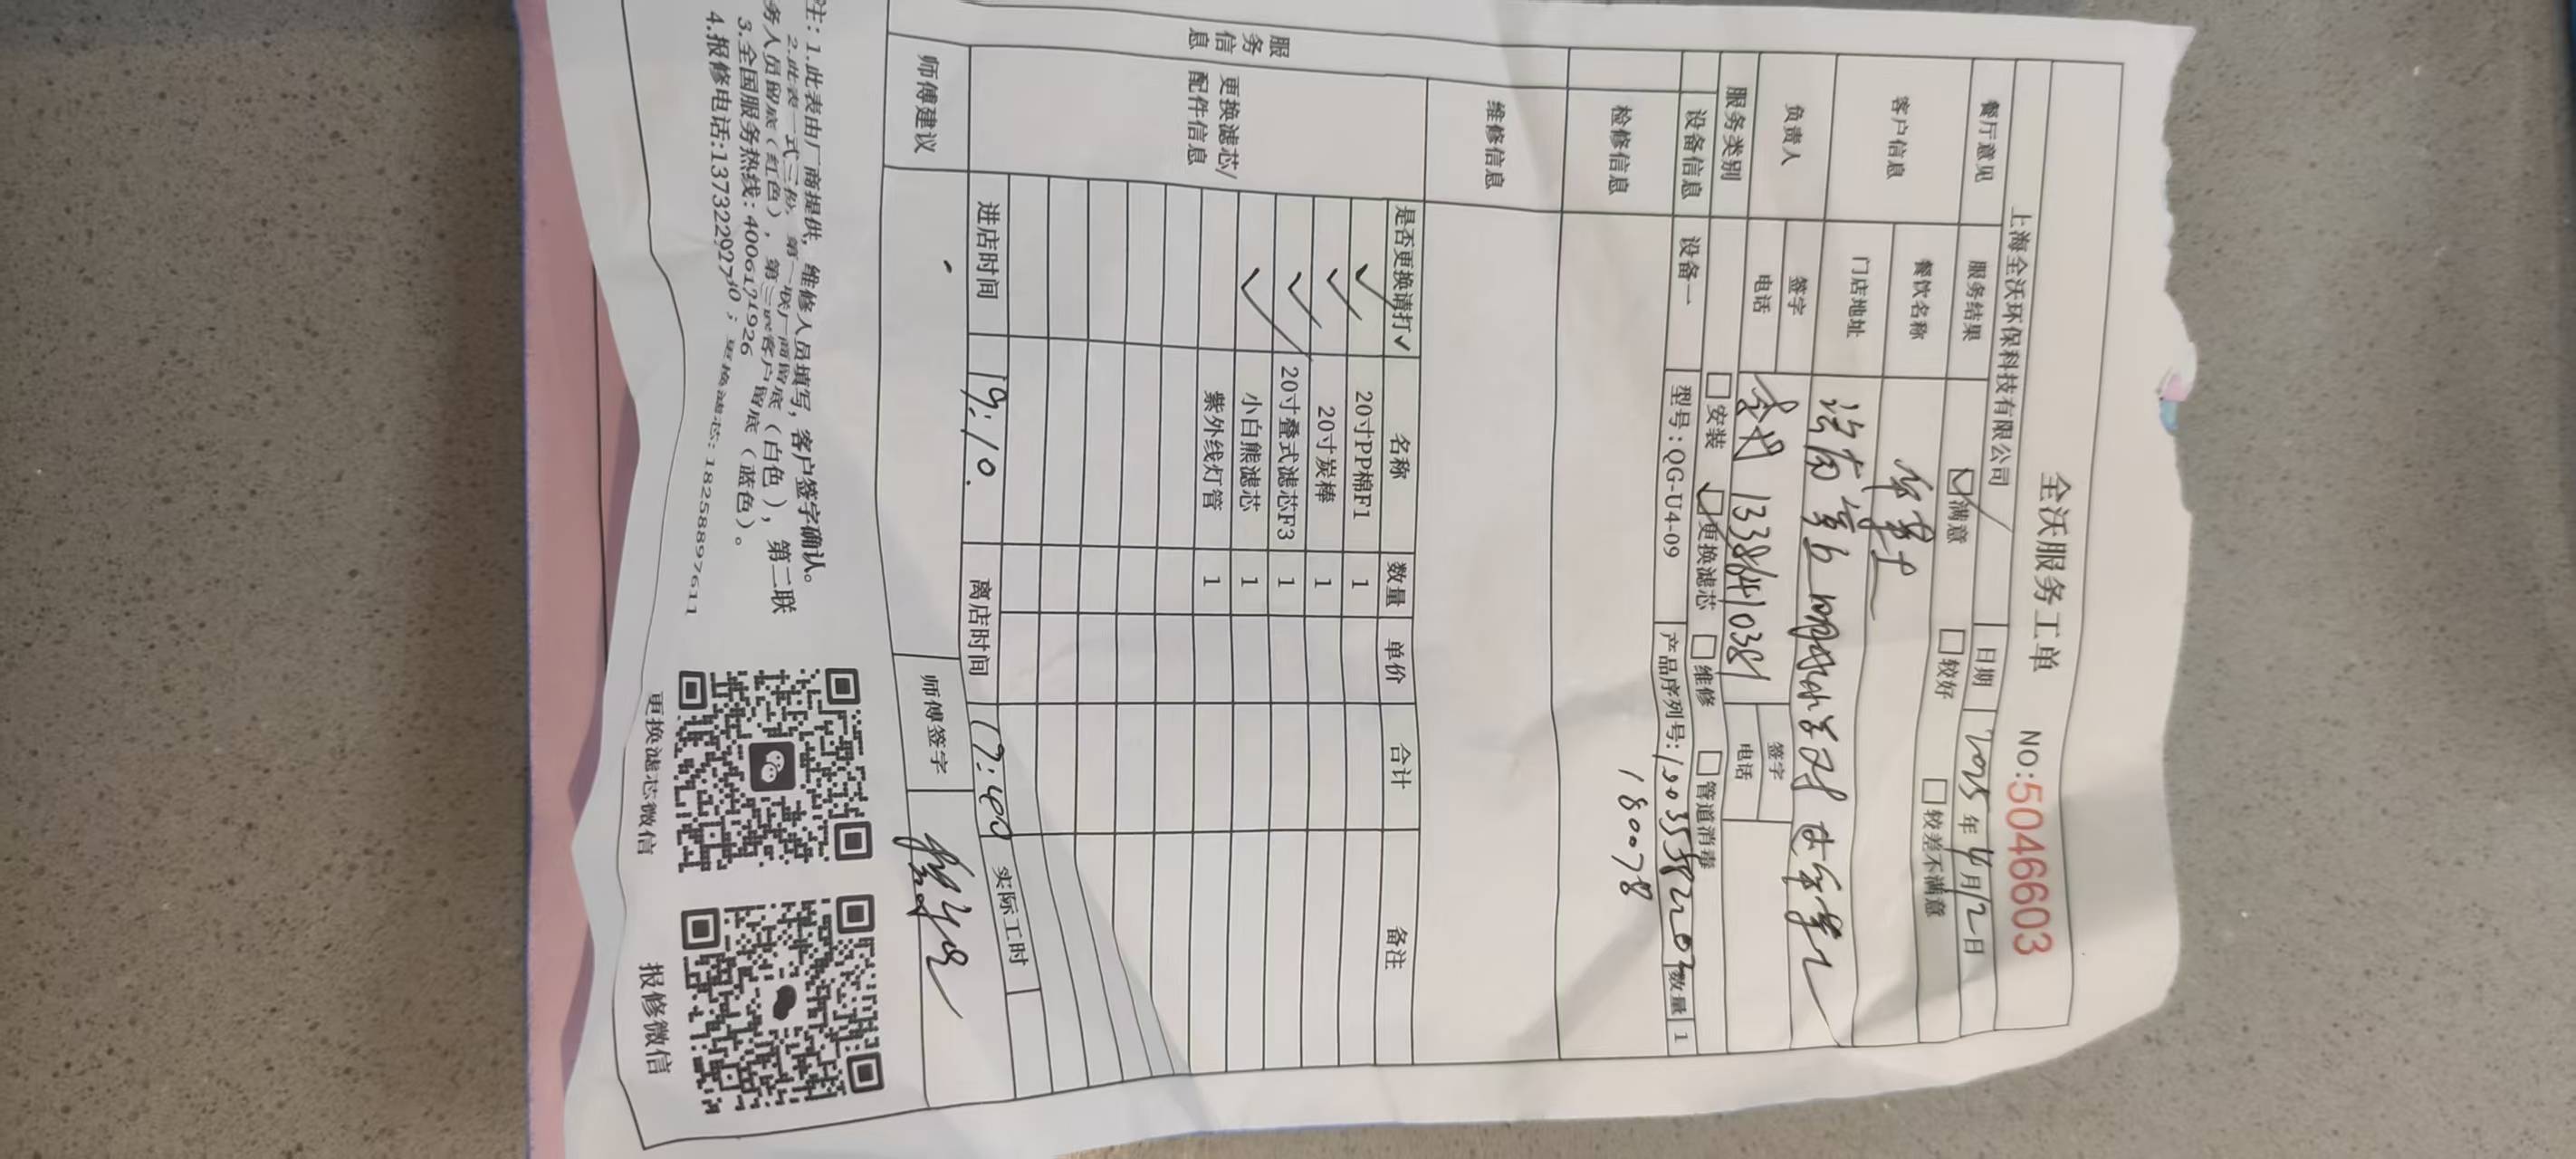 全沃服务工单 NO:5046603
上海全沃环保科技有限公司 日期 2025年4月12日
餐厅意见 服务结果 ☑满意 □较好 □较差不满意
客户信息 餐饮名称
门店地址
负责人 签字 签字
电话 13386410381 电话
服务类别 □安装 ☑更换滤芯 □维修 □管道消毒
设备信息 设备一 型号:QG-U4-09 产品序列号: 数量 1
180078
检修信息
维修信息
服务信息
更换滤芯/配件信息
是否更换请打✓ 名称 数量 单价 合计 备注
✓ 20寸PP棉F1 1
✓ 20寸炭棒 1
✓ 20寸叠式滤芯F3 1
✓ 小白熊滤芯 1
紫外线灯管 1
进店时间 19:10. 离店时间 17:40 实际工时
师傅建议 师傅签字
注: 1.此表由厂商提供, 维修人员填写, 客户签字确认。
2.此表一式三份, 第一联厂商留底(白色), 第二联
务人员留底(红色), 第三联客户留底(蓝色)。
3.全国服务热线: 4006171926
4.报修电话:13732292730; 更换滤芯: 18258897611
更换滤芯微信 报修微信